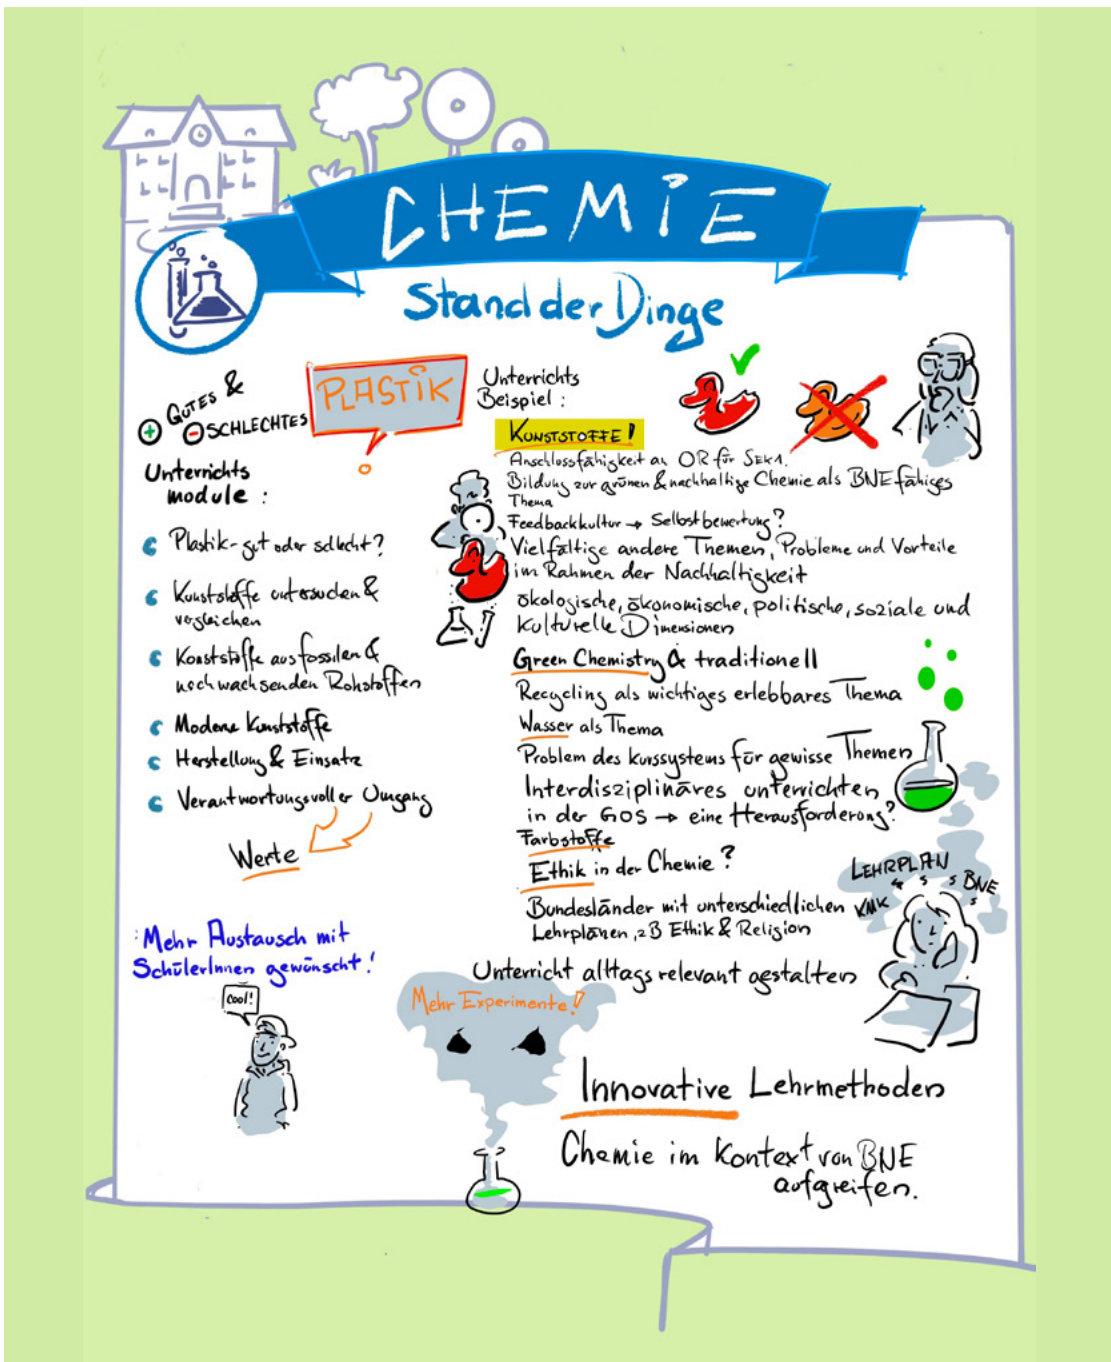 CHEMIE
Stand der Dinge
GUTES &
SCHLECHTES
PLASTIK
Unterrichts
module :
Plastik - gut oder schlecht?
Kunststoffe untersuchen &
vergleichen
Kunststoffe aus fossilen &
nachwachsenden Rohstoffen
Moderne Kunststoffe
Herstellung & Einsatz
Verantwortungsvoller Umgang
Werte
Mehr Austausch mit
SchülerInnen gewünscht!
Cool!
Unterrichts
Beispiel :
KUNSTSTOFFE!
Anschlussfähigkeit an OR für SEK1.
Bildung zur grünen & nachhaltige Chemie als BNE fähiges
Thema
Feedbackkultur → Selbstbewertung?
Vielfältige andere Themen, Probleme und Vorteile
im Rahmen der Nachhaltigkeit
ökologische, ökonomische, politische, soziale und
kulturelle Dimensionen
Green Chemistry & traditionell
Recycling als wichtiges erlebbares Thema
Wasser als Thema
Problem des Kurssystems für gewisse Themen
Interdisziplinäres unterrichten
in der GOS → eine Herausforderung?
Farbstoffe
Ethik in der Chemie ?
Bundesländer mit unterschiedlichen
Lehrplänen, zB Ethik & Religion
LEHRPLAN
BNE
KMK
Unterricht alltagsrelevant gestalten
Mehr Experimente!
Innovative Lehrmethoden
Chemie im Kontext von BNE
aufgreifen.